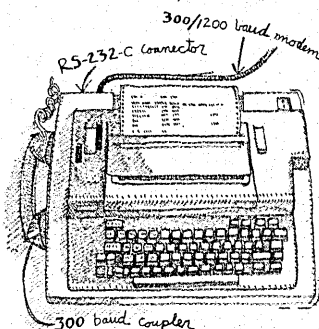 300/1200 baud modem
RS-232-C connector
300 baud coupler